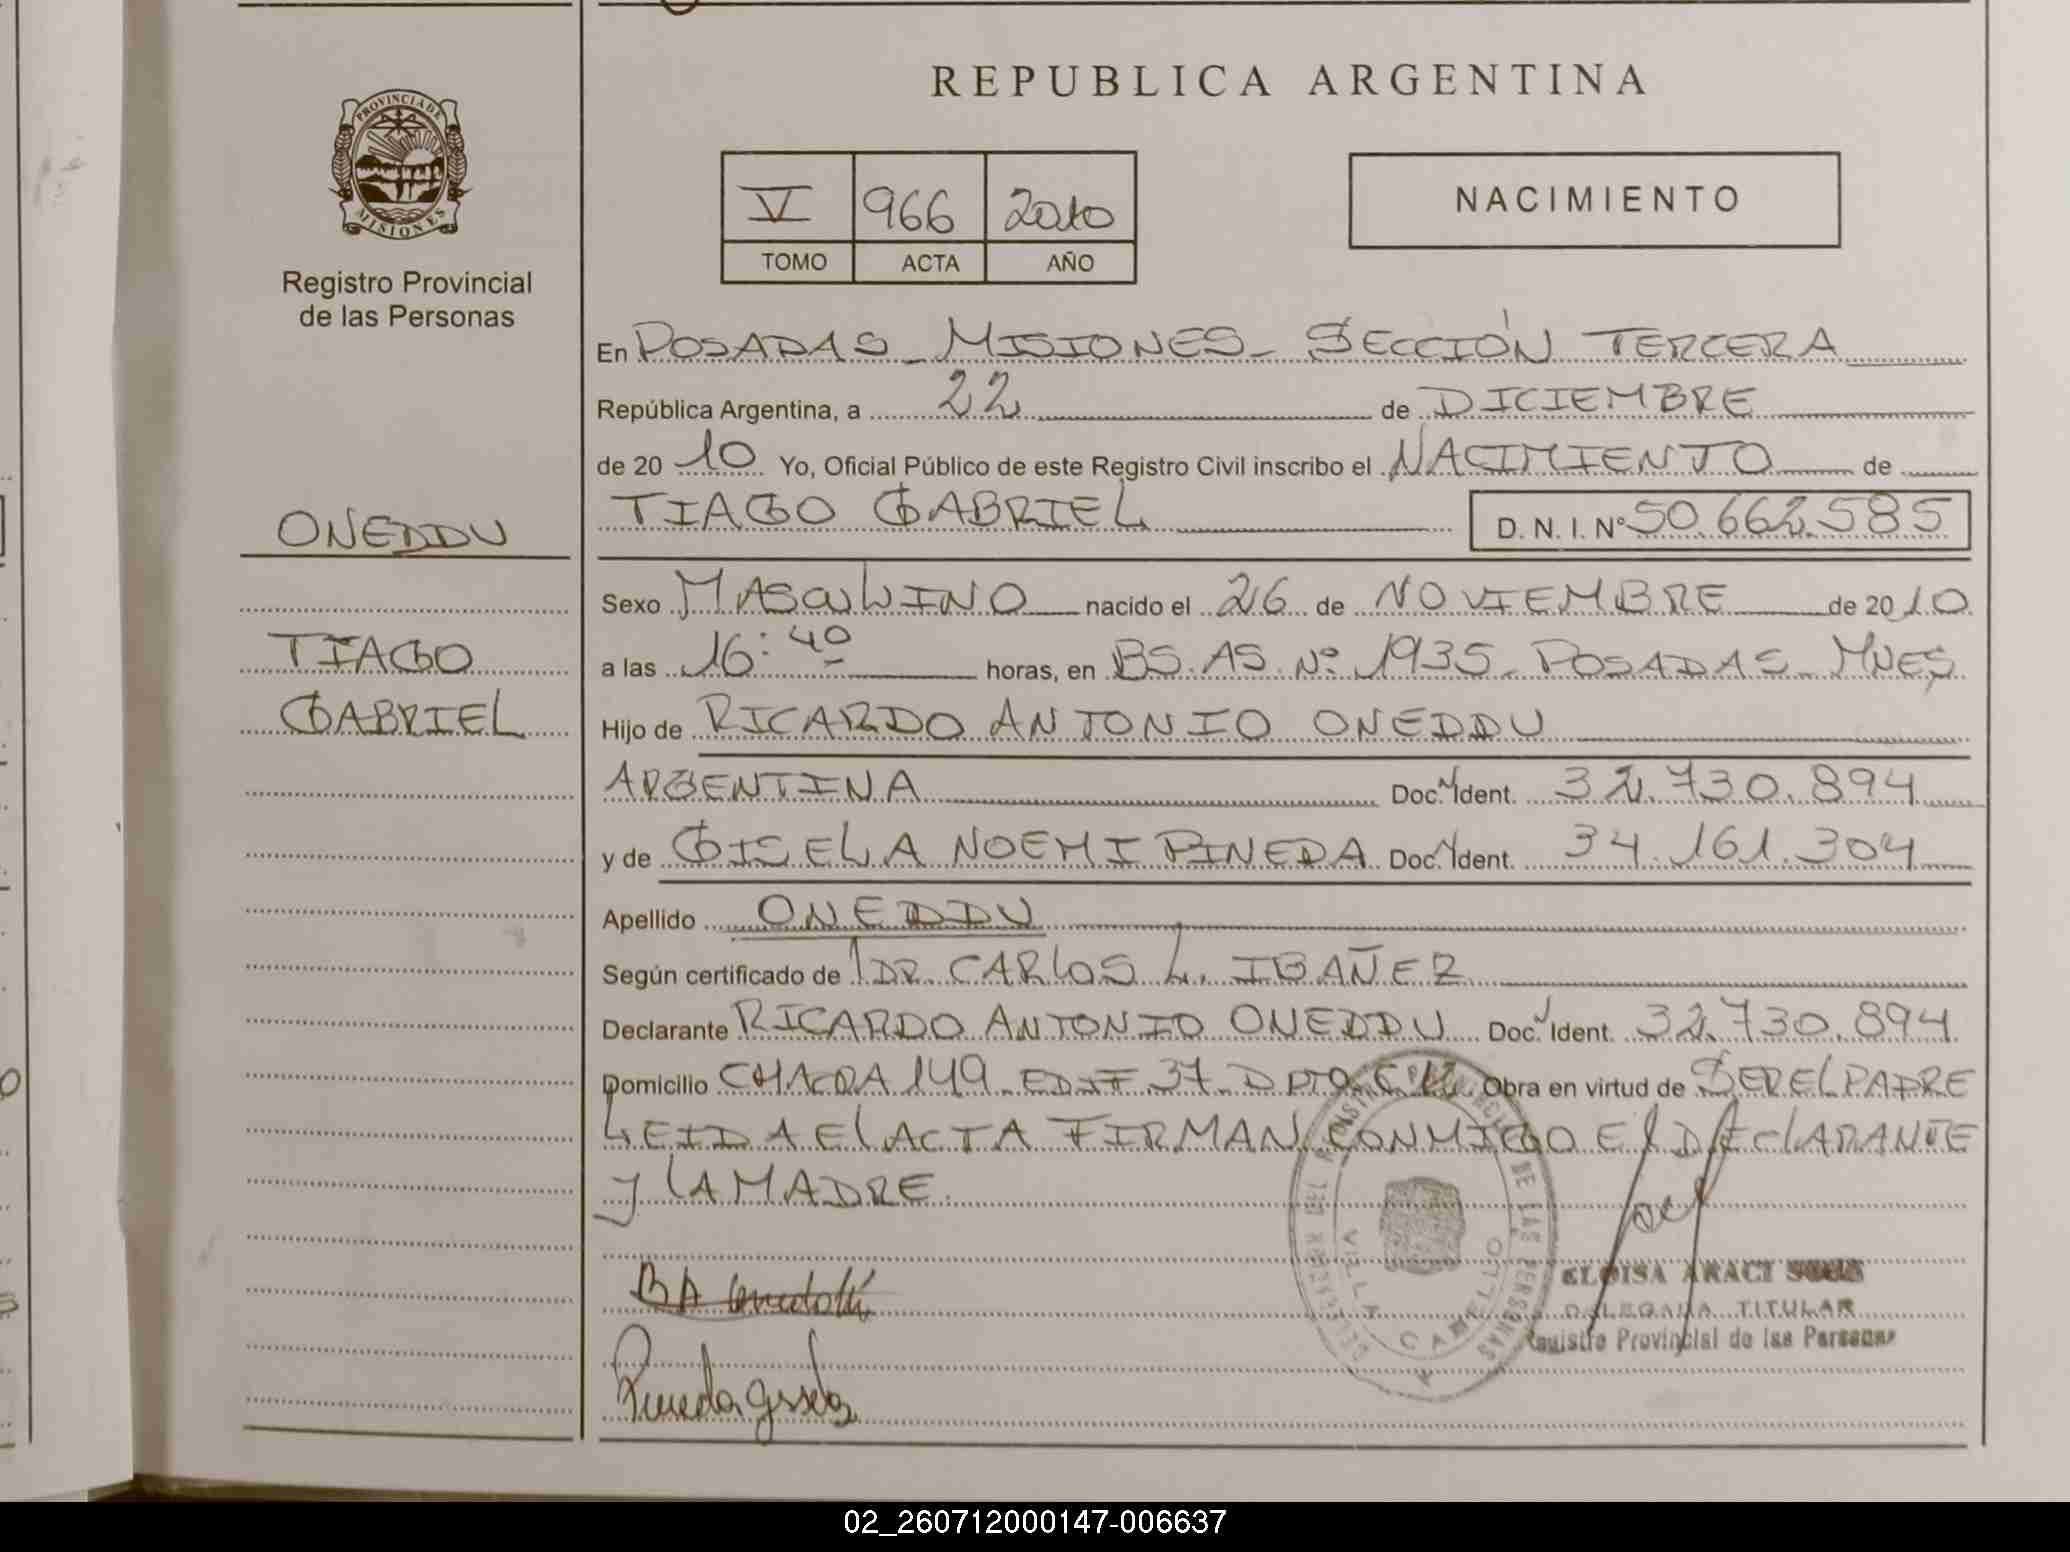 REPUBLICA ARGENTINA
PROVINCIA DE MISIONES
Registro Provincial
de las Personas
V 966 2010
TOMO ACTA AÑO
NACIMIENTO
En POSADAS - MISIONES - SECCIÓN TERCERA
República Argentina, a 22 de DICIEMBRE
de 2010 Yo, Oficial Público de este Registro Civil inscribo el NACIMIENTO de
TIAGO GABRIEL D. N. I. Nº 50.662.585
ONEDDU
TIAGO
GABRIEL
Sexo MASCULINO nacido el 26 de NOVIEMBRE de 2010
a las 16:40 horas, en BS. AS. Nº 1935 - POSADAS - MNES
Hijo de RICARDO ANTONIO ONEDDU
ARGENTINA Doc. Ident. 32.730.894
y de GISELA NOEMI PINEDA Doc. Ident. 34.161.304
Apellido ONEDDU
Según certificado de DR. CARLOS L. IBAÑEZ
Declarante RICARDO ANTONIO ONEDDU Doc. Ident. 32.730.894
Domicilio CHACRA 149 - EDIF 37 - DPTO. C Obra en virtud de SER EL PADRE
LEIDA EL ACTA FIRMAN CONMIGO EL DECLARANTE
y LA MADRE.
Pineda Gisela
VILLA CABELLO
DE LAS PERSONAS
ELOISA ARACI
DELEGADA TITULAR
Registro Provincial de las Personas
02_260712000147-006637